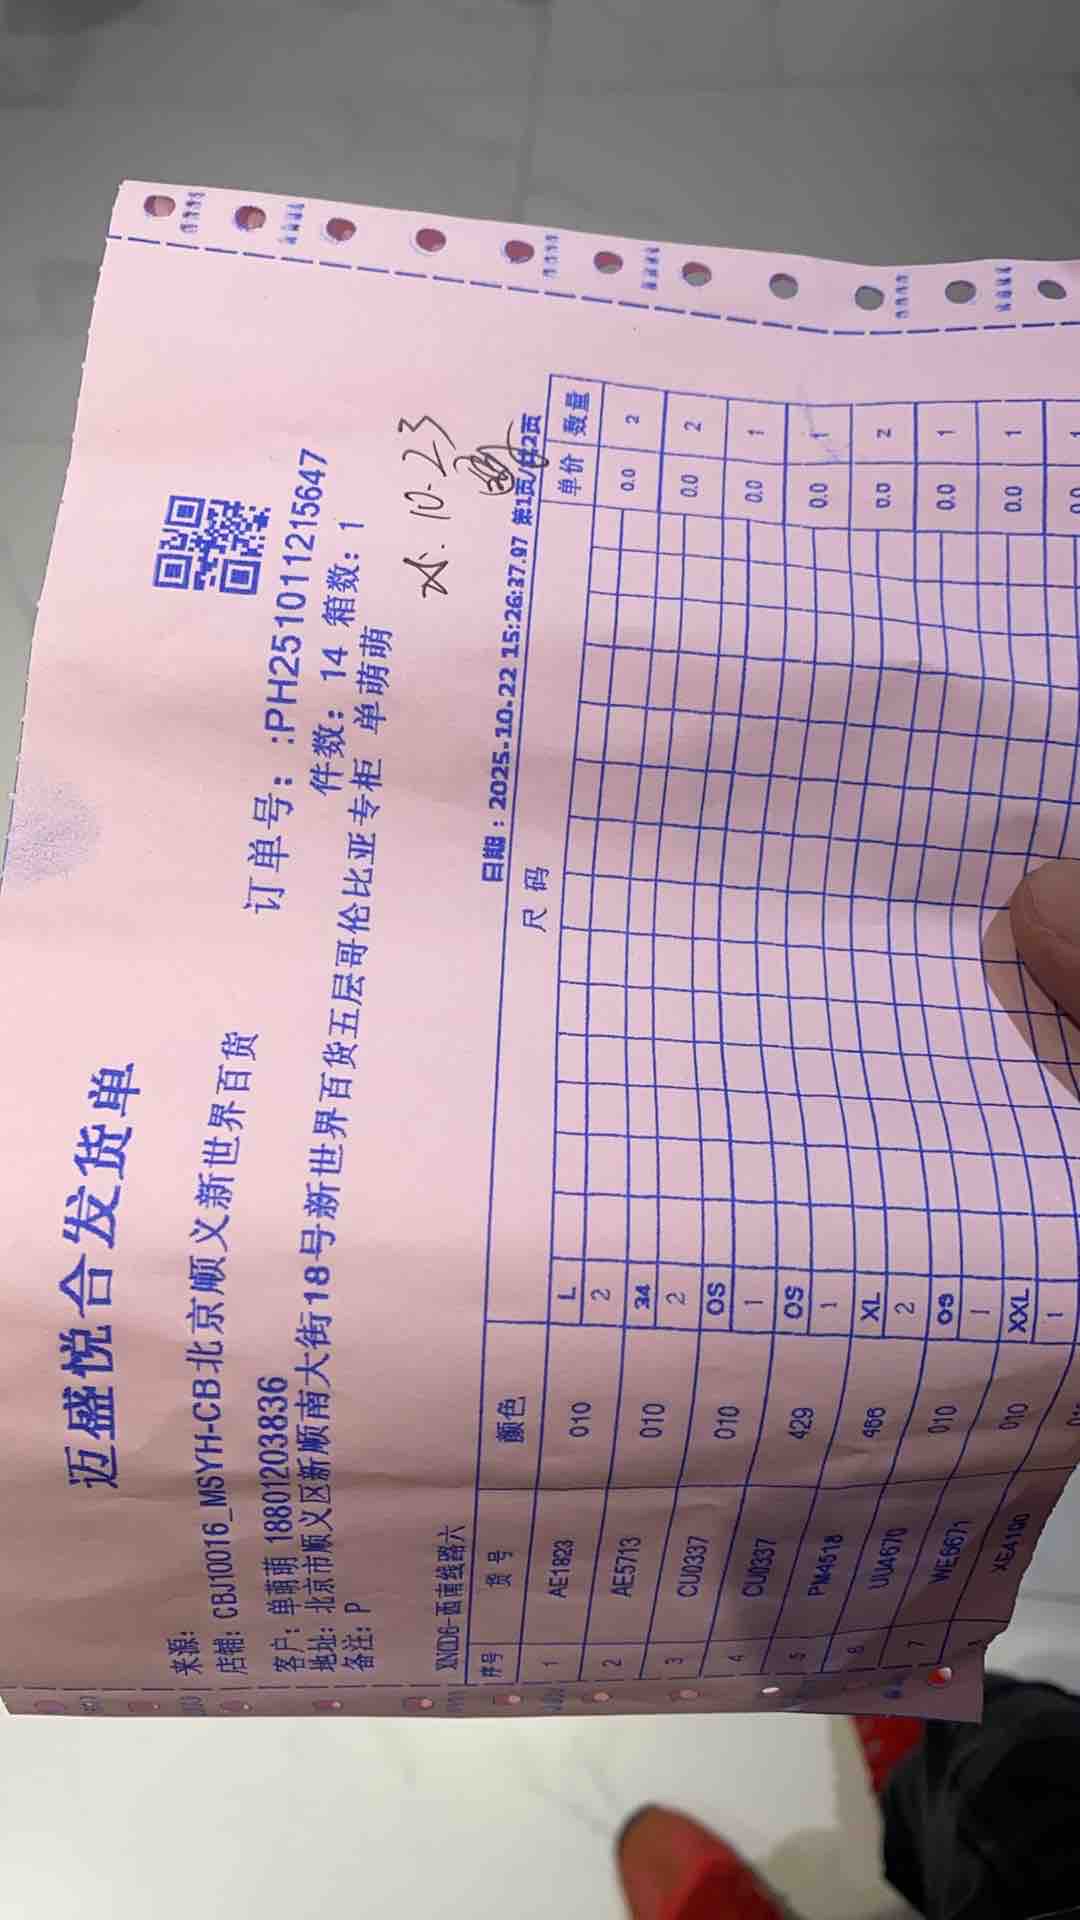 迈盛悦合发货单
来源:
店铺: CBJ10016_MSYH-CB北京顺义新世界百货
订单号: :PH251011215647
客户: 单萌萌 18801203836
件数: 14 箱数: 1
地址: 北京市顺义区新顺南大街18号新世界百货五层哥伦比亚专柜 单萌萌
备注: P
10.23
XND6-西南线路六
日期: 2025-10-22 15:26:37.97 第1页/共2页
序号 货号 颜色 尺码 单价 数量
L
1 AE1823 010 2 0.0 2
34
2 AE5713 010 2 0.0 2
OS
3 CU0337 010 1 0.0 1
OS
4 CU0337 429 1 0.0 1
XL
5 PM4518 466 2 0.0 2
OS
6 UU4670 010 1 0.0 1
XXL
7 WE6671 010 1 0.0 1